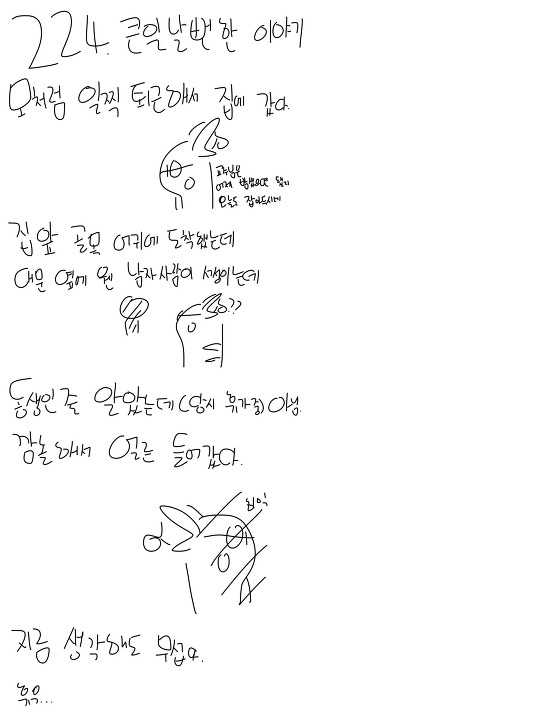 224. 큰일날뻔 한 이야기
모처럼 일찍 퇴근해서 집에 갔다.
교수님은
어제 밤샜으면 됐지
오늘도 잡아두시네
집 앞 골목 어귀에 도착했는데
대문 옆에 웬 남자사람이 서있는데
??
동생인 줄 알았는데 (당시 휴가중) 아님.
깜놀해서 얼른 들어갔다.
히익
지금 생각해도 무섭다.
휴우...